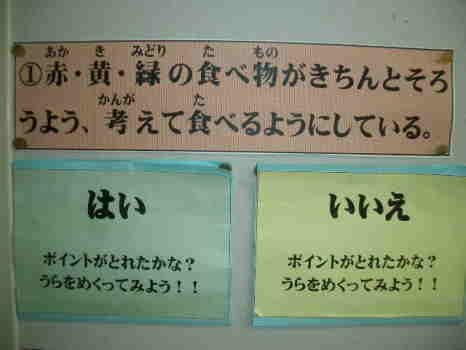 ①赤・黄・緑の食べ物がきちんとそろ
うよう、考えて食べるようにしている。
はい
ポイントがとれたかな？
うらをめくってみよう！！
いいえ
ポイントがとれたかな？
うらをめくってみよう！！